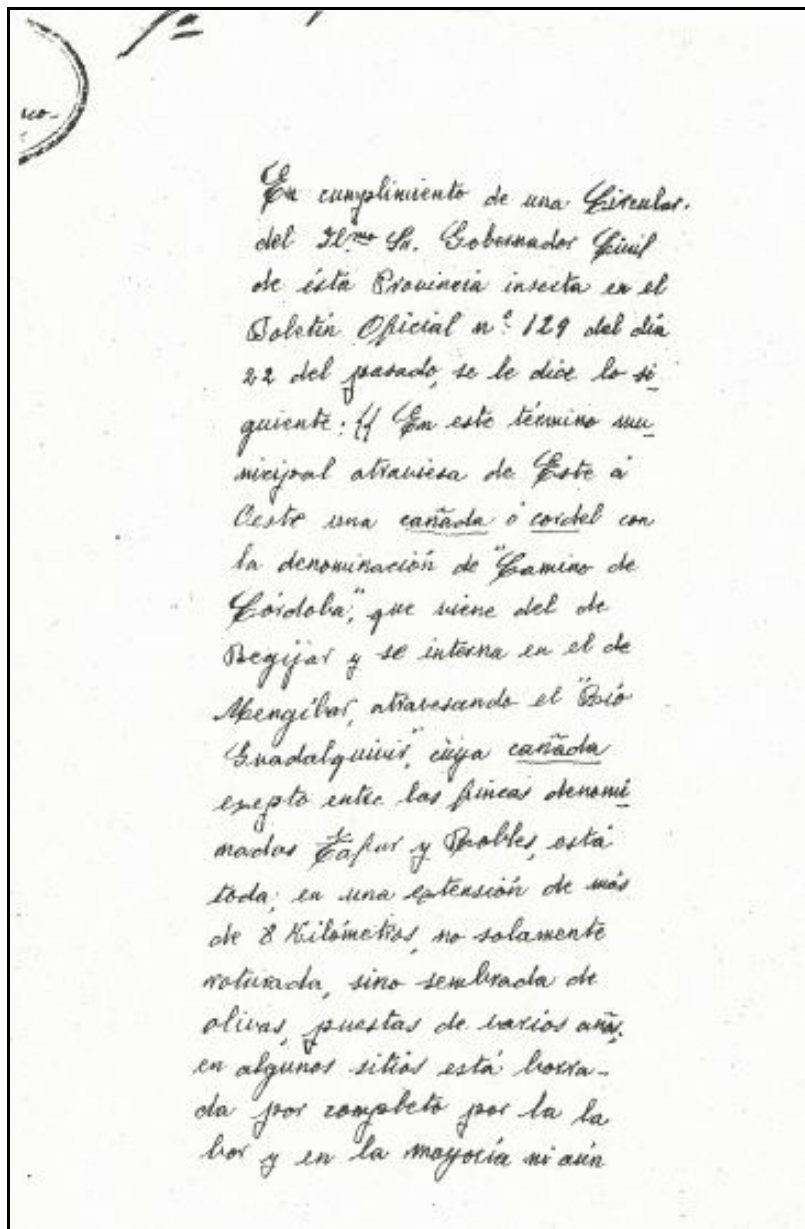 En cumplimiento de una Circular.
del Ilmo Sr. Gobernador Civil
de ésta Provincia inserta en el
Boletín Oficial nº 129 del día
22 del pasado, se le dice lo si
guiente: {{ En este término mu
nicipal atraviesa de Este á
Oeste una cañada ó cordel con
la denominación de "Camino de
Córdoba", que viene del de
Begijar y se interna en el de
Mengíbar, atravesando el "Rió
Guadalquivir", cúya cañada
exepto entre las fincas denomi
nadas y Robles, está
toda, en una extensión de más
de 8 Kilómetros, no solamente
roturada, sino sembrada de
olivas, puestas de varios años,
en algunos sitiós está borra-
da por completo por la la
bor y en la mayoría ni aún